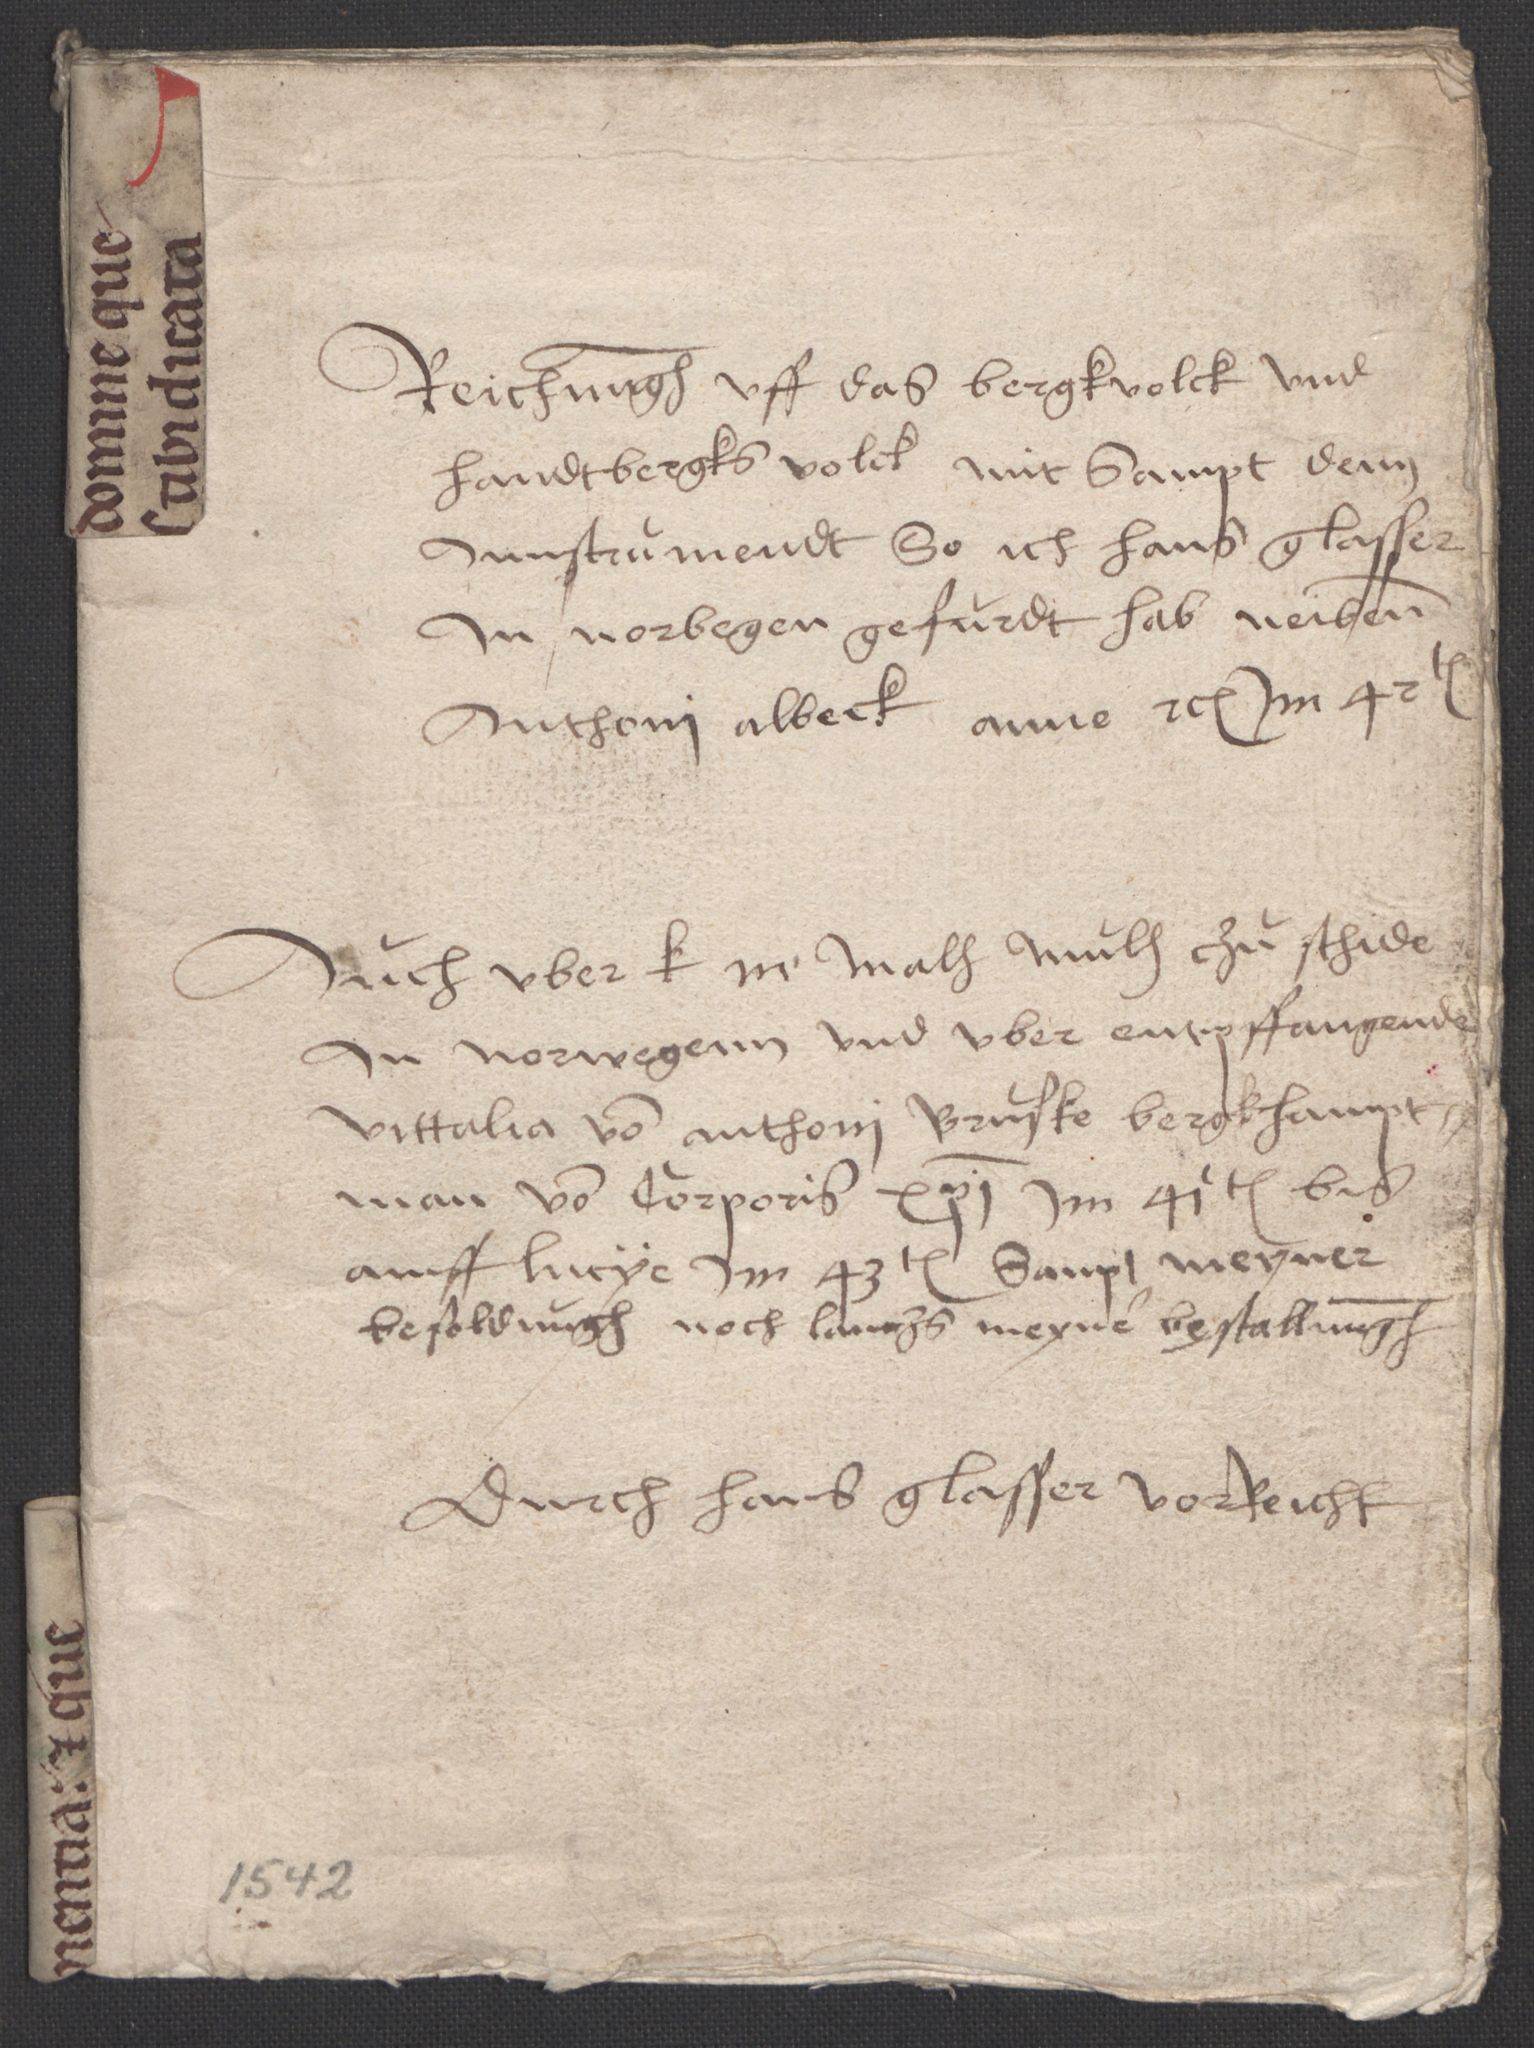 domine que
stabi dicata
Reichnungh uff das bergkvolck vnd
handtbergks volck mit Sampt denn
Innstrumendt So ich hans glasser
In norbegen gefurdt hab neiben
Anthonj albeck anne rc Im 42 t
Auch vber k m malh mulh czu schide
In norwegenn vnd vber entpffangende
vittalia vo anthonj Bruske bergkhampt
man vo Corporis xpi Im 41 t bis
auff lucye Im 43 t Sanpt meyner
besoldungh noch lauths meyne bestallungh
Durch hans glasser vorReicht
menta: z que
1542